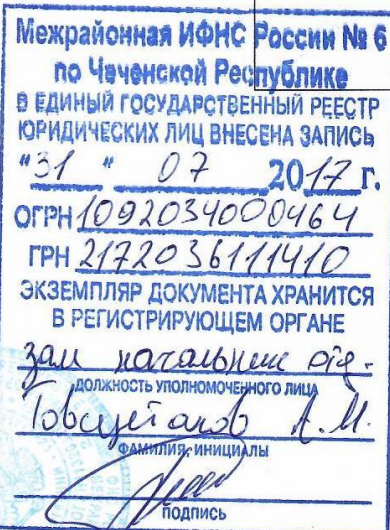 Межрайонная ИФНС России № 6
по Чеченской Республике
В ЕДИНЫЙ ГОСУДАРСТВЕННЫЙ РЕЕСТР
ЮРИДИЧЕСКИХ ЛИЦ ВНЕСЕНА ЗАПИСЬ
"31" 07 2017 г.
ОГРН 1092034000464
ГРН 2172036111410
ЭКЗЕМПЛЯР ДОКУМЕНТА ХРАНИТСЯ
В РЕГИСТРИРУЮЩЕМ ОРГАНЕ
зам начальник отд.
ДОЛЖНОСТЬ УПОЛНОМОЧЕННОГО ЛИЦА
А.М.
ФАМИЛИЯ, ИНИЦИАЛЫ
ПОДПИСЬ